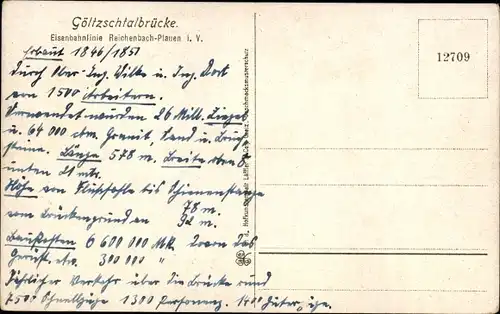 Göltzschtalbrücke.
Eisenbahnlinie Reichenbach-Plauen i. V.
12709
Erbaut 1846/1851
durch Ober-Ing. Wilke u. Ing. Dost
von 1500 Arbeitern.
Verwendet wurden 26 Mill. Ziegel
u. 64 000 cbm. Granit, Sand u. Bruch-
steine. Länge 578 m. Breite oben 8
unten 21 mtr.
Höhe von Flußsohle bis Schienenstange
78 m.
vom Brückengrund an
Baukosten 6 600 000 Mk. davon das
Gerüst etc. 300 000 "
Jährlicher Verkehr über die Brücke rund
7500 Schnellzüge 1300 Personenz.